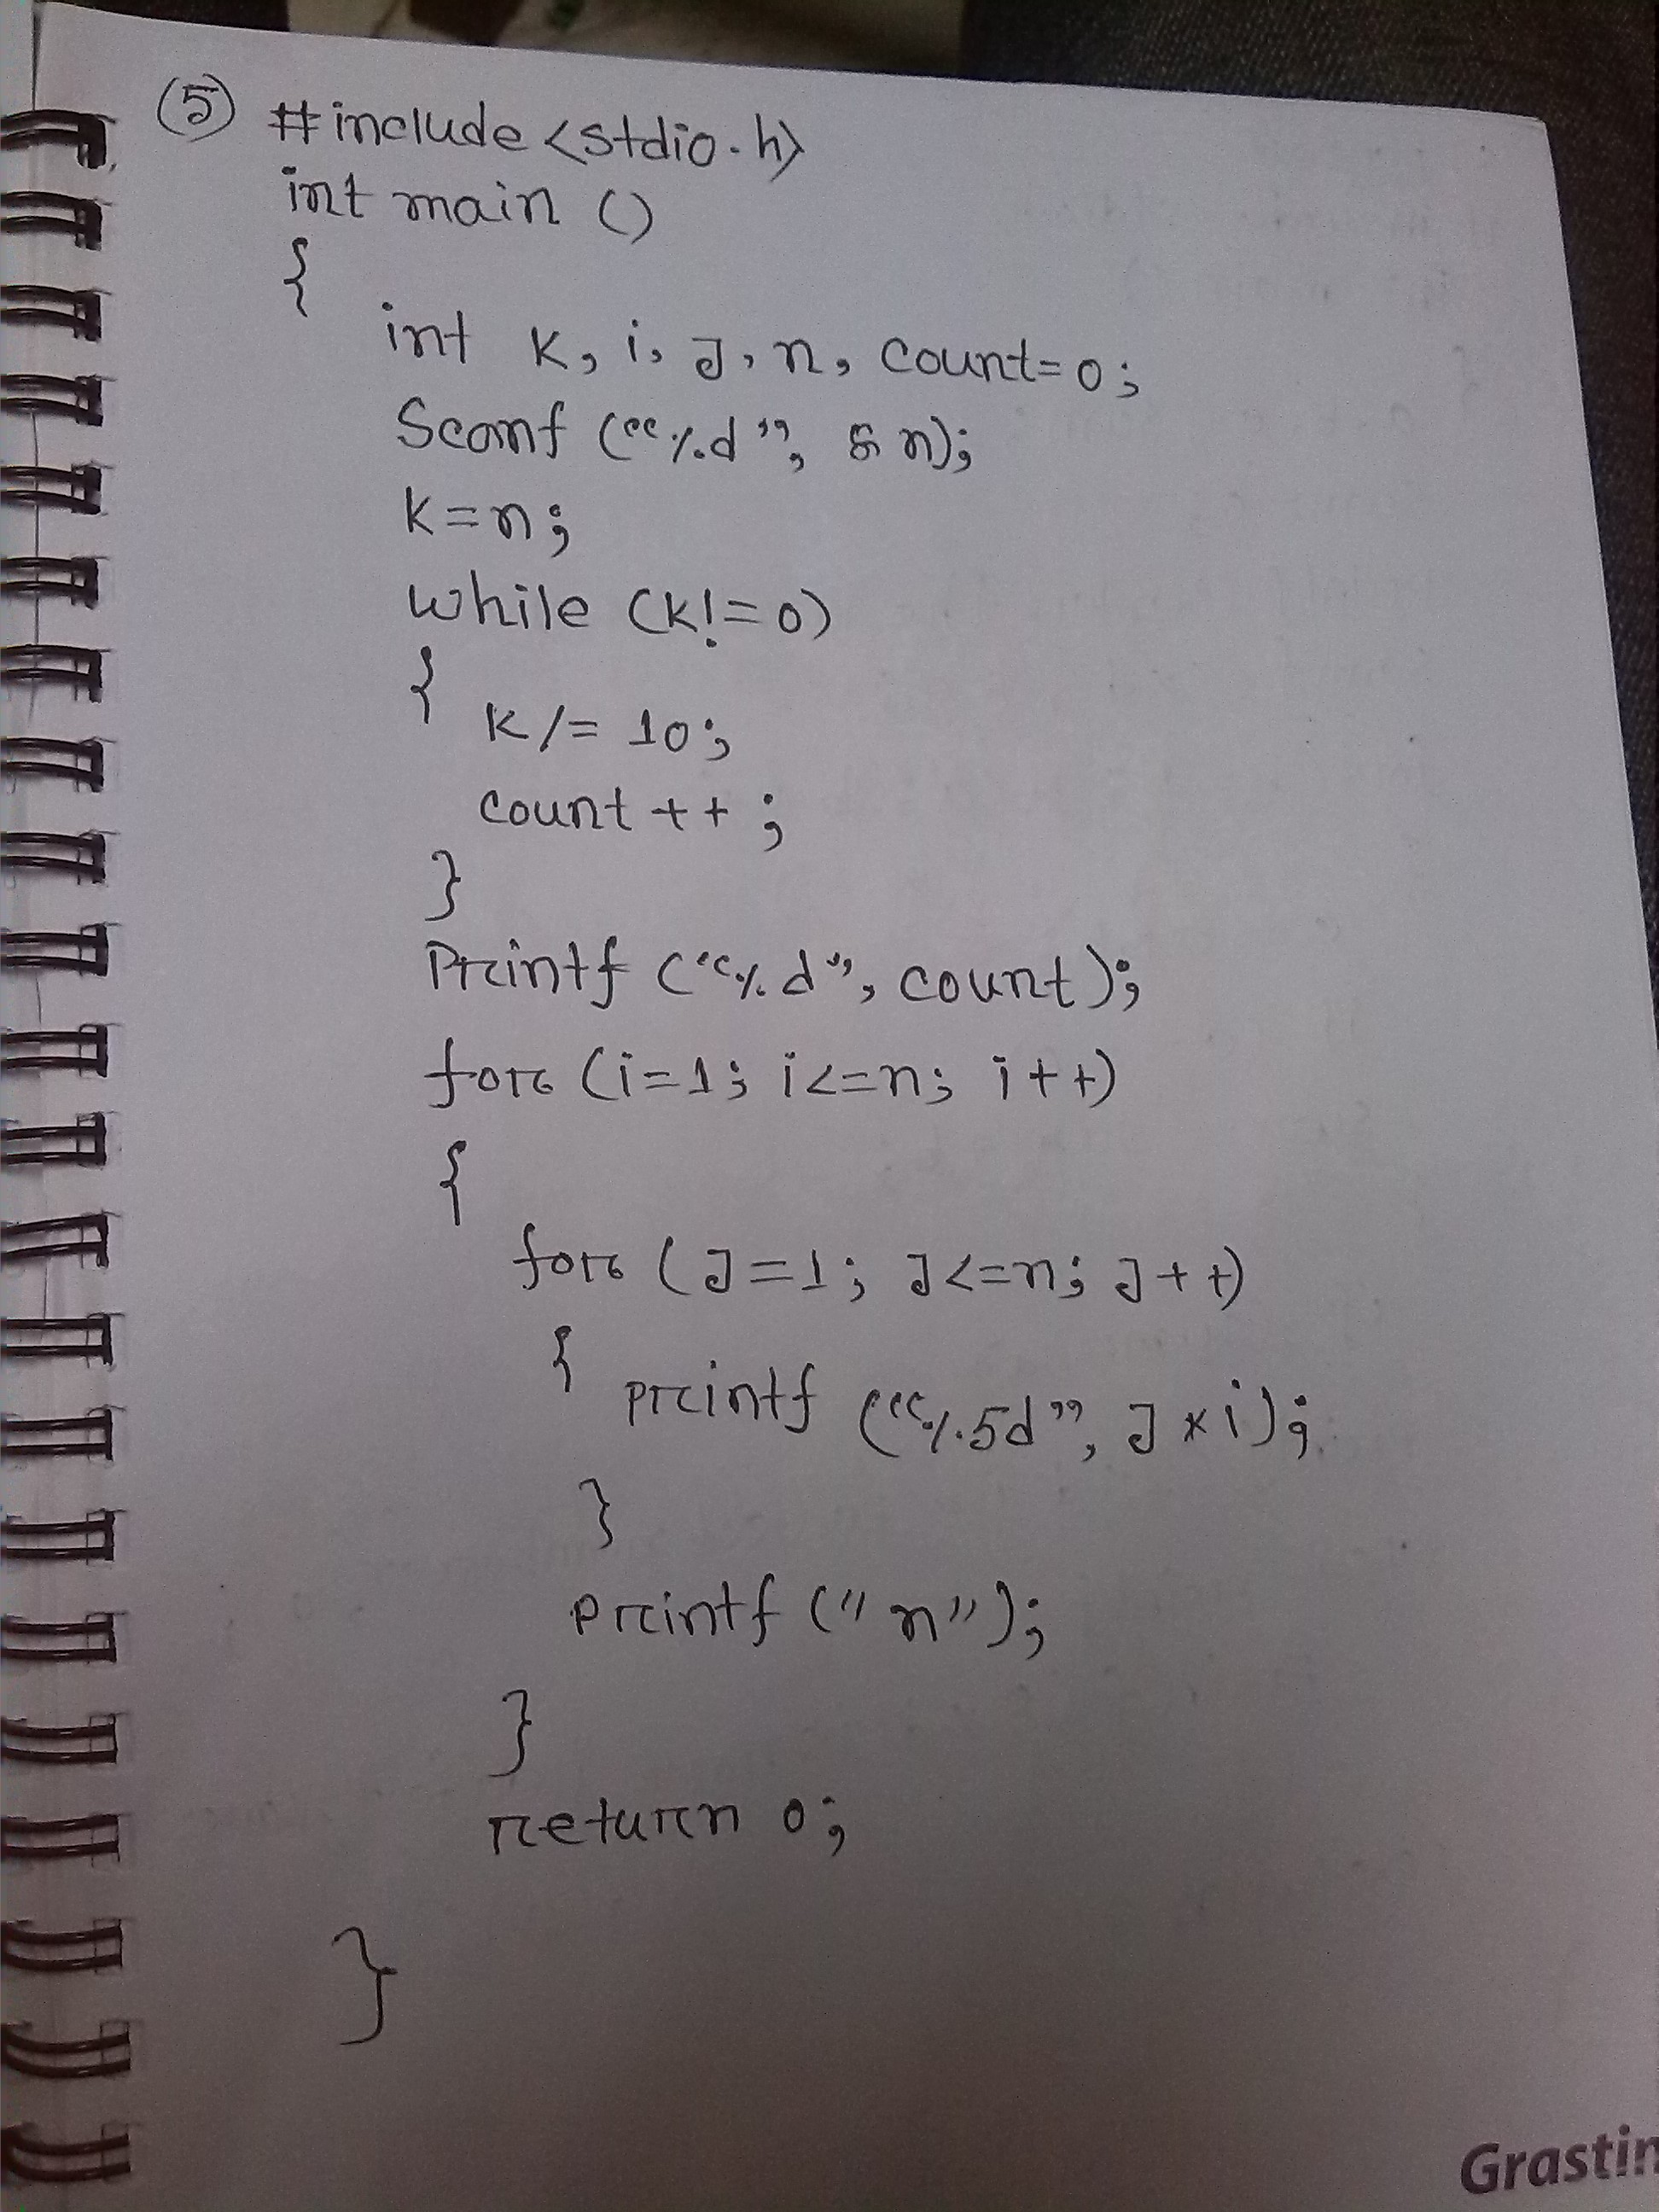 (5) #include <stdio.h>
int main ()
{
int k, i, J, n, count=0;
Scanf ("%d", & n);
k=n;
while (k!=0)
{
k /= 10;
count ++ ;
}
Printf ("%d", count);
for (i=1; i<=n; i++)
{
for (J=1; J<=n; J++)
{
printf ("%5d", J * i);
}
printf ("n");
}
return 0;
}
Grastin